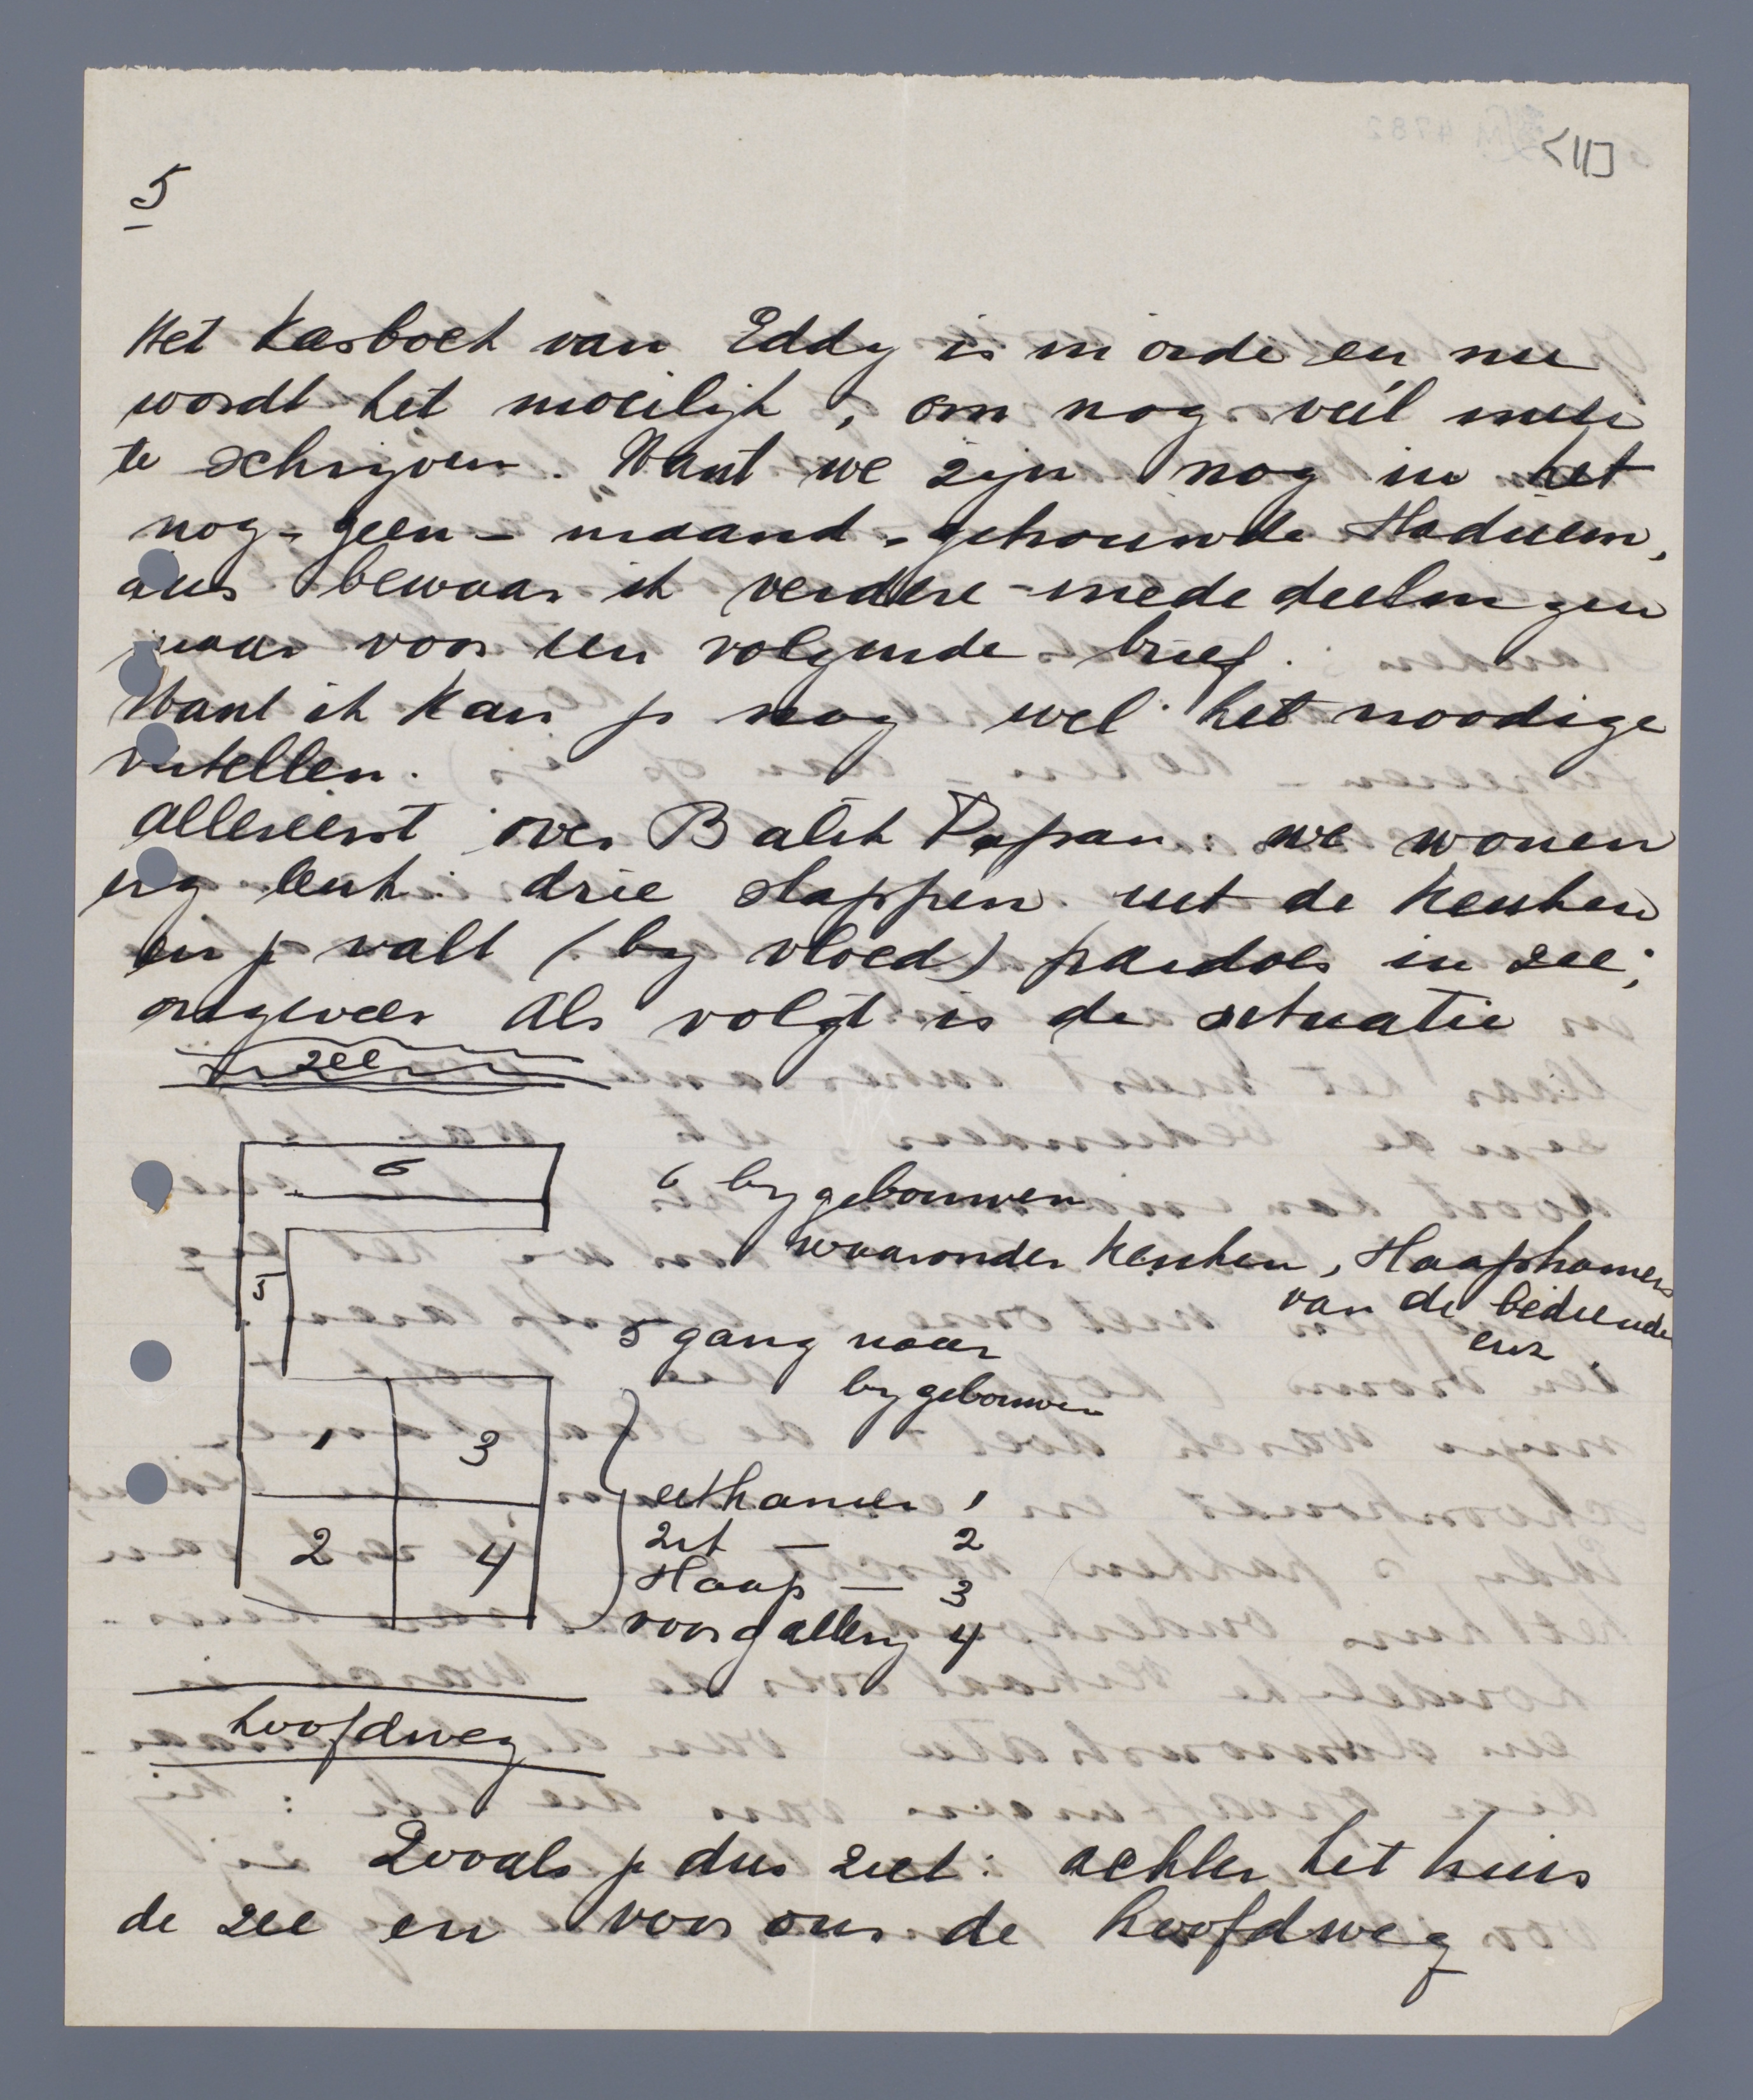 <11]
5
Het Kasboek van Eddy is in orde en nu
wordt het moeilijk, om nog véél meer
te schrijven. Want we zijn nog in het
nog-geen-maand-getrouwde stadium,
dus bewaar ik verdere mededeelingen
maar voor een volgende brief.
Want ik kan je nog wel het noodige
vertellen.
Allereerst over Balik Papan: we wonen
erg leuk: drie stappen uit de keuken
en je valt (by vloed) pardoes in zee;
ongeveer als volgt is de situatie
zee
6
6 bygebouwen
waaronder keuken, slaapkamers
van de bediende
enz.
5
5 gang naar
bygebouwen
1 3
2 4
eetkamer 1
zit — 2
slaap — 3
voorgallery 4
hoofdweg
Zooals je dus ziet: achter het huis
de zee en voor ons de hoofdweg